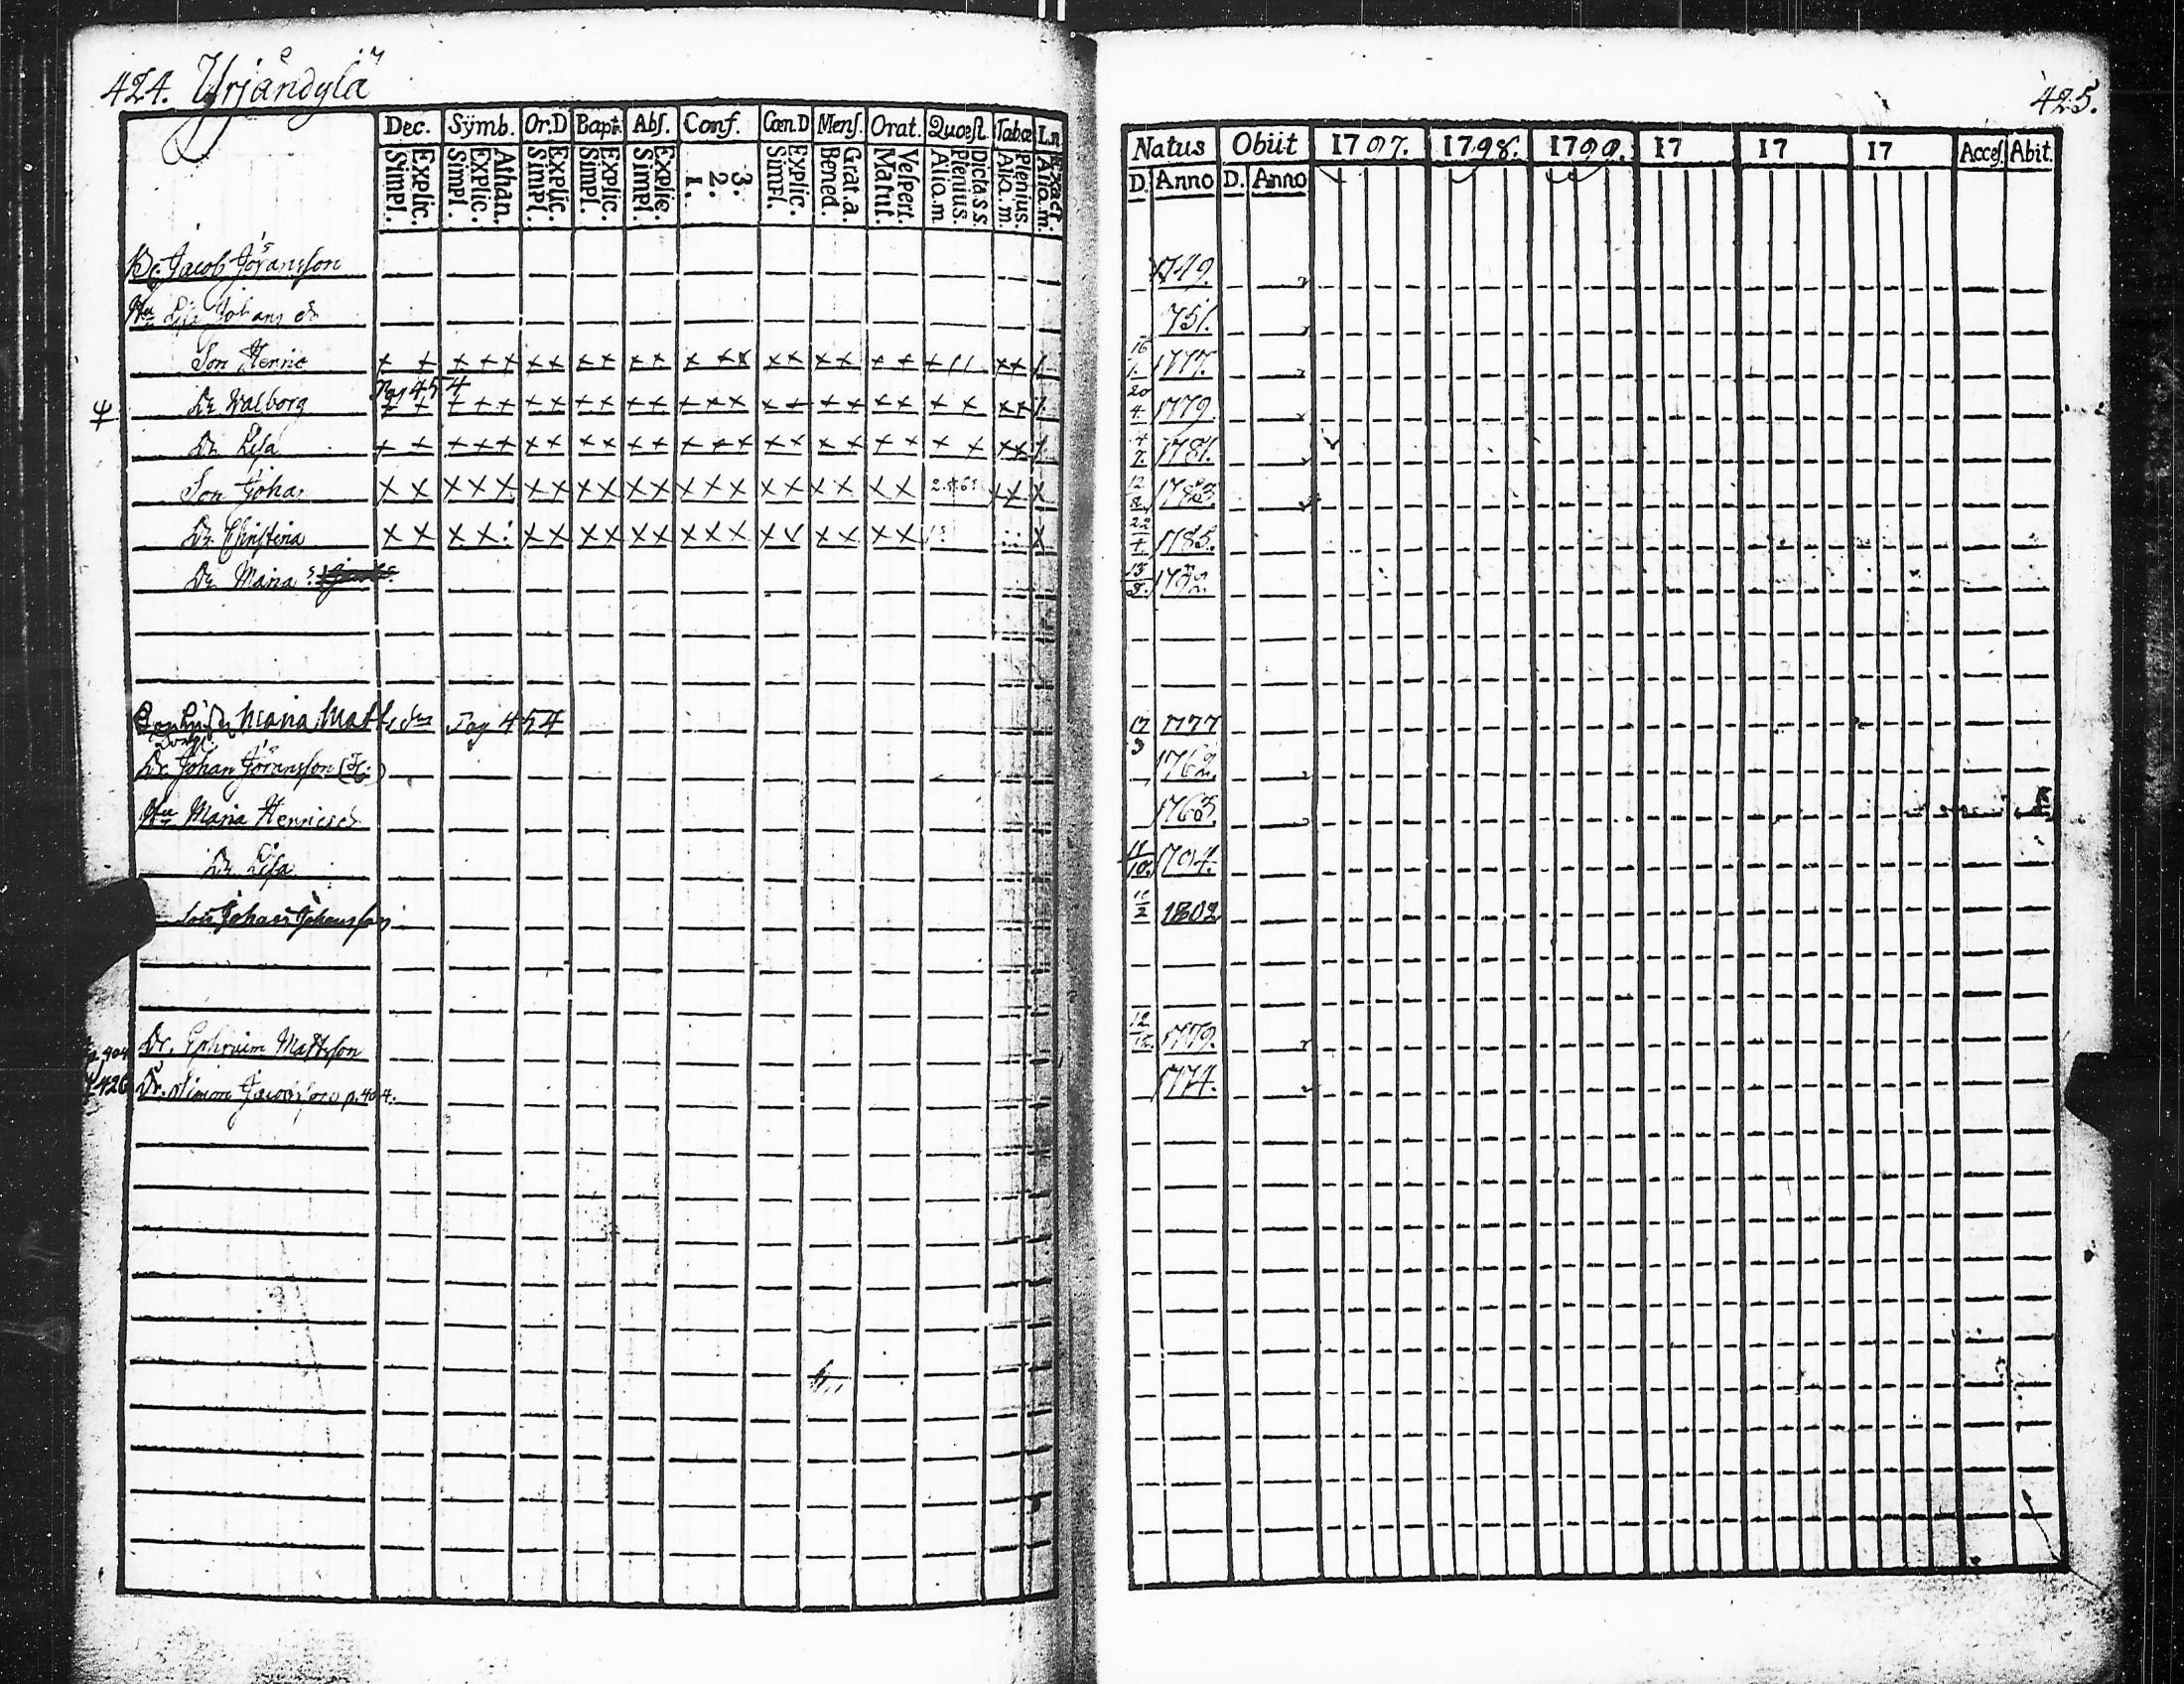 424. Yrjändylä
425.
Dec. Sÿmb. Or.D Bapt. Abſ. Conf. Cœn.D Menſ. Orat. Quœſt. Tabœ
Simpl. Explic. Simpl. Explic. Athan. Simpl. Explic. Simpl. Explic. Simpl. Explic. 1. 2. 3. Simpl. Explic. Bened. Grat.a. Matut. Veſpert. Alio.m. Plenius. Dicta.s.s. Alio.m. Plenius. Alio.m.
Natus Obiit 1797. 1798. 1799. 17 17 17 Acceſ. Abit.
D. Anno D. Anno
Jacob Jöransson 1749.
Hu Lisa Johans dr 751.
Son Henric + + + + + + + + + + + + + + + + + + + + + 16/1. 1777.
Pag 454
Dr Walborg + + + + + + + + + + + + + + + + + + + + + + 20/4. 1779.
Dr Lisa + + + + + + + + + + + + + + + + + + + + + + 1781.
Son Johan x x x x x x x x x x x x x x x x x x x x x x 12/8. 1783.
Dr Christina x x x x x x x x x x x x x x x x x x 1785.
Dr Maria
Maria Matts dr Pag 454 17/9 1777
Dr. Johan Jöransson 1762.
Hu Maria Henricsdr 1763.
Dr Lisa 11/10. 1794.
Son Johan Johansson 1802
p. 404 Dr. Ephraim Mattsson 12/12. 1779.
426 Dr. Simon Jacobsson p. 404. 1774.